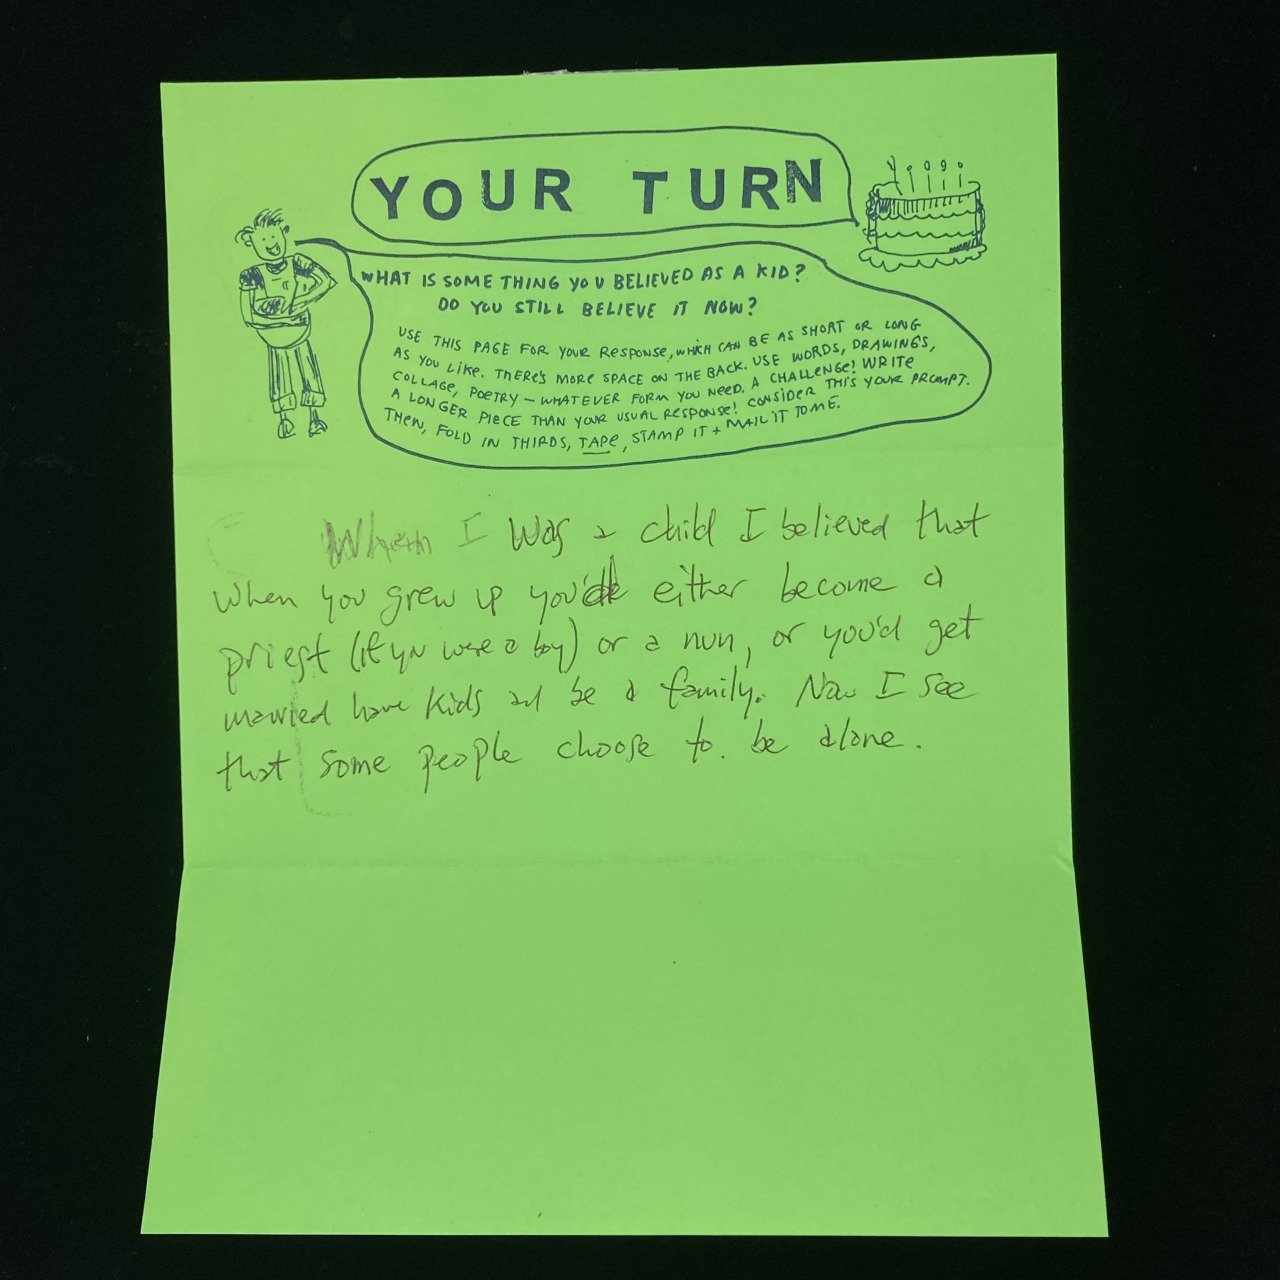 YOUR TURN
WHAT IS SOMETHING YOU BELIEVED AS A KID?
DO YOU STILL BELIEVE IT NOW?
USE THIS PAGE FOR YOUR RESPONSE, WHICH CAN BE AS SHORT OR LONG
AS YOU LIKE. THERE'S MORE SPACE ON THE BACK. USE WORDS, DRAWINGS,
COLLAGE, POETRY — WHATEVER FORM YOU NEED. A CHALLENGE! WRITE
A LONGER PIECE THAN YOUR USUAL RESPONSE! CONSIDER THIS YOUR PROMPT.
THEN, FOLD IN THIRDS, TAPE, STAMP IT + MAIL IT TO ME.
When I was a child I believed that
when you grew up you'd either become a
priest (if you were a boy) or a nun, or you'd get
married have kids and be a family. Now I see
that some people choose to be alone.